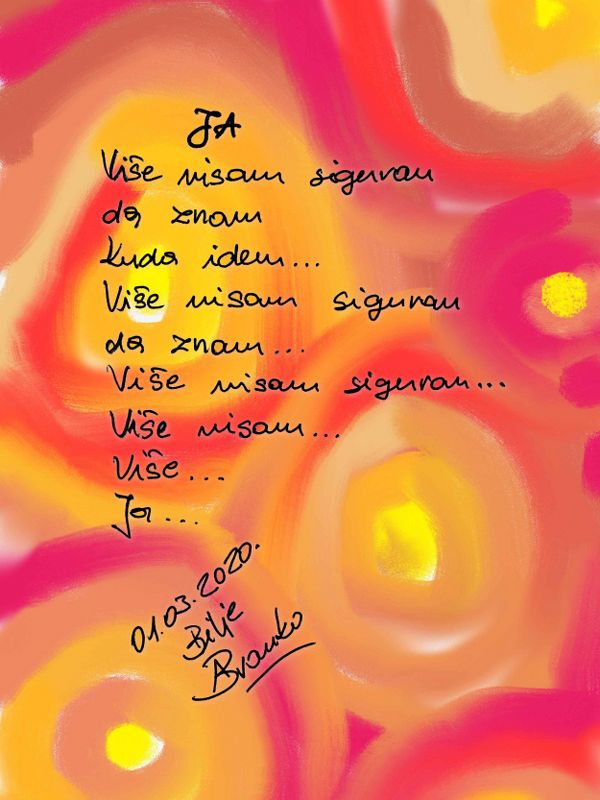 JA
Više nisam siguran
da znam
kuda idem...
Više nisam siguran
da znam...
Više nisam siguran...
Više nisam...
Više...
Ja...
01.03.2020.
Bilje
Branko